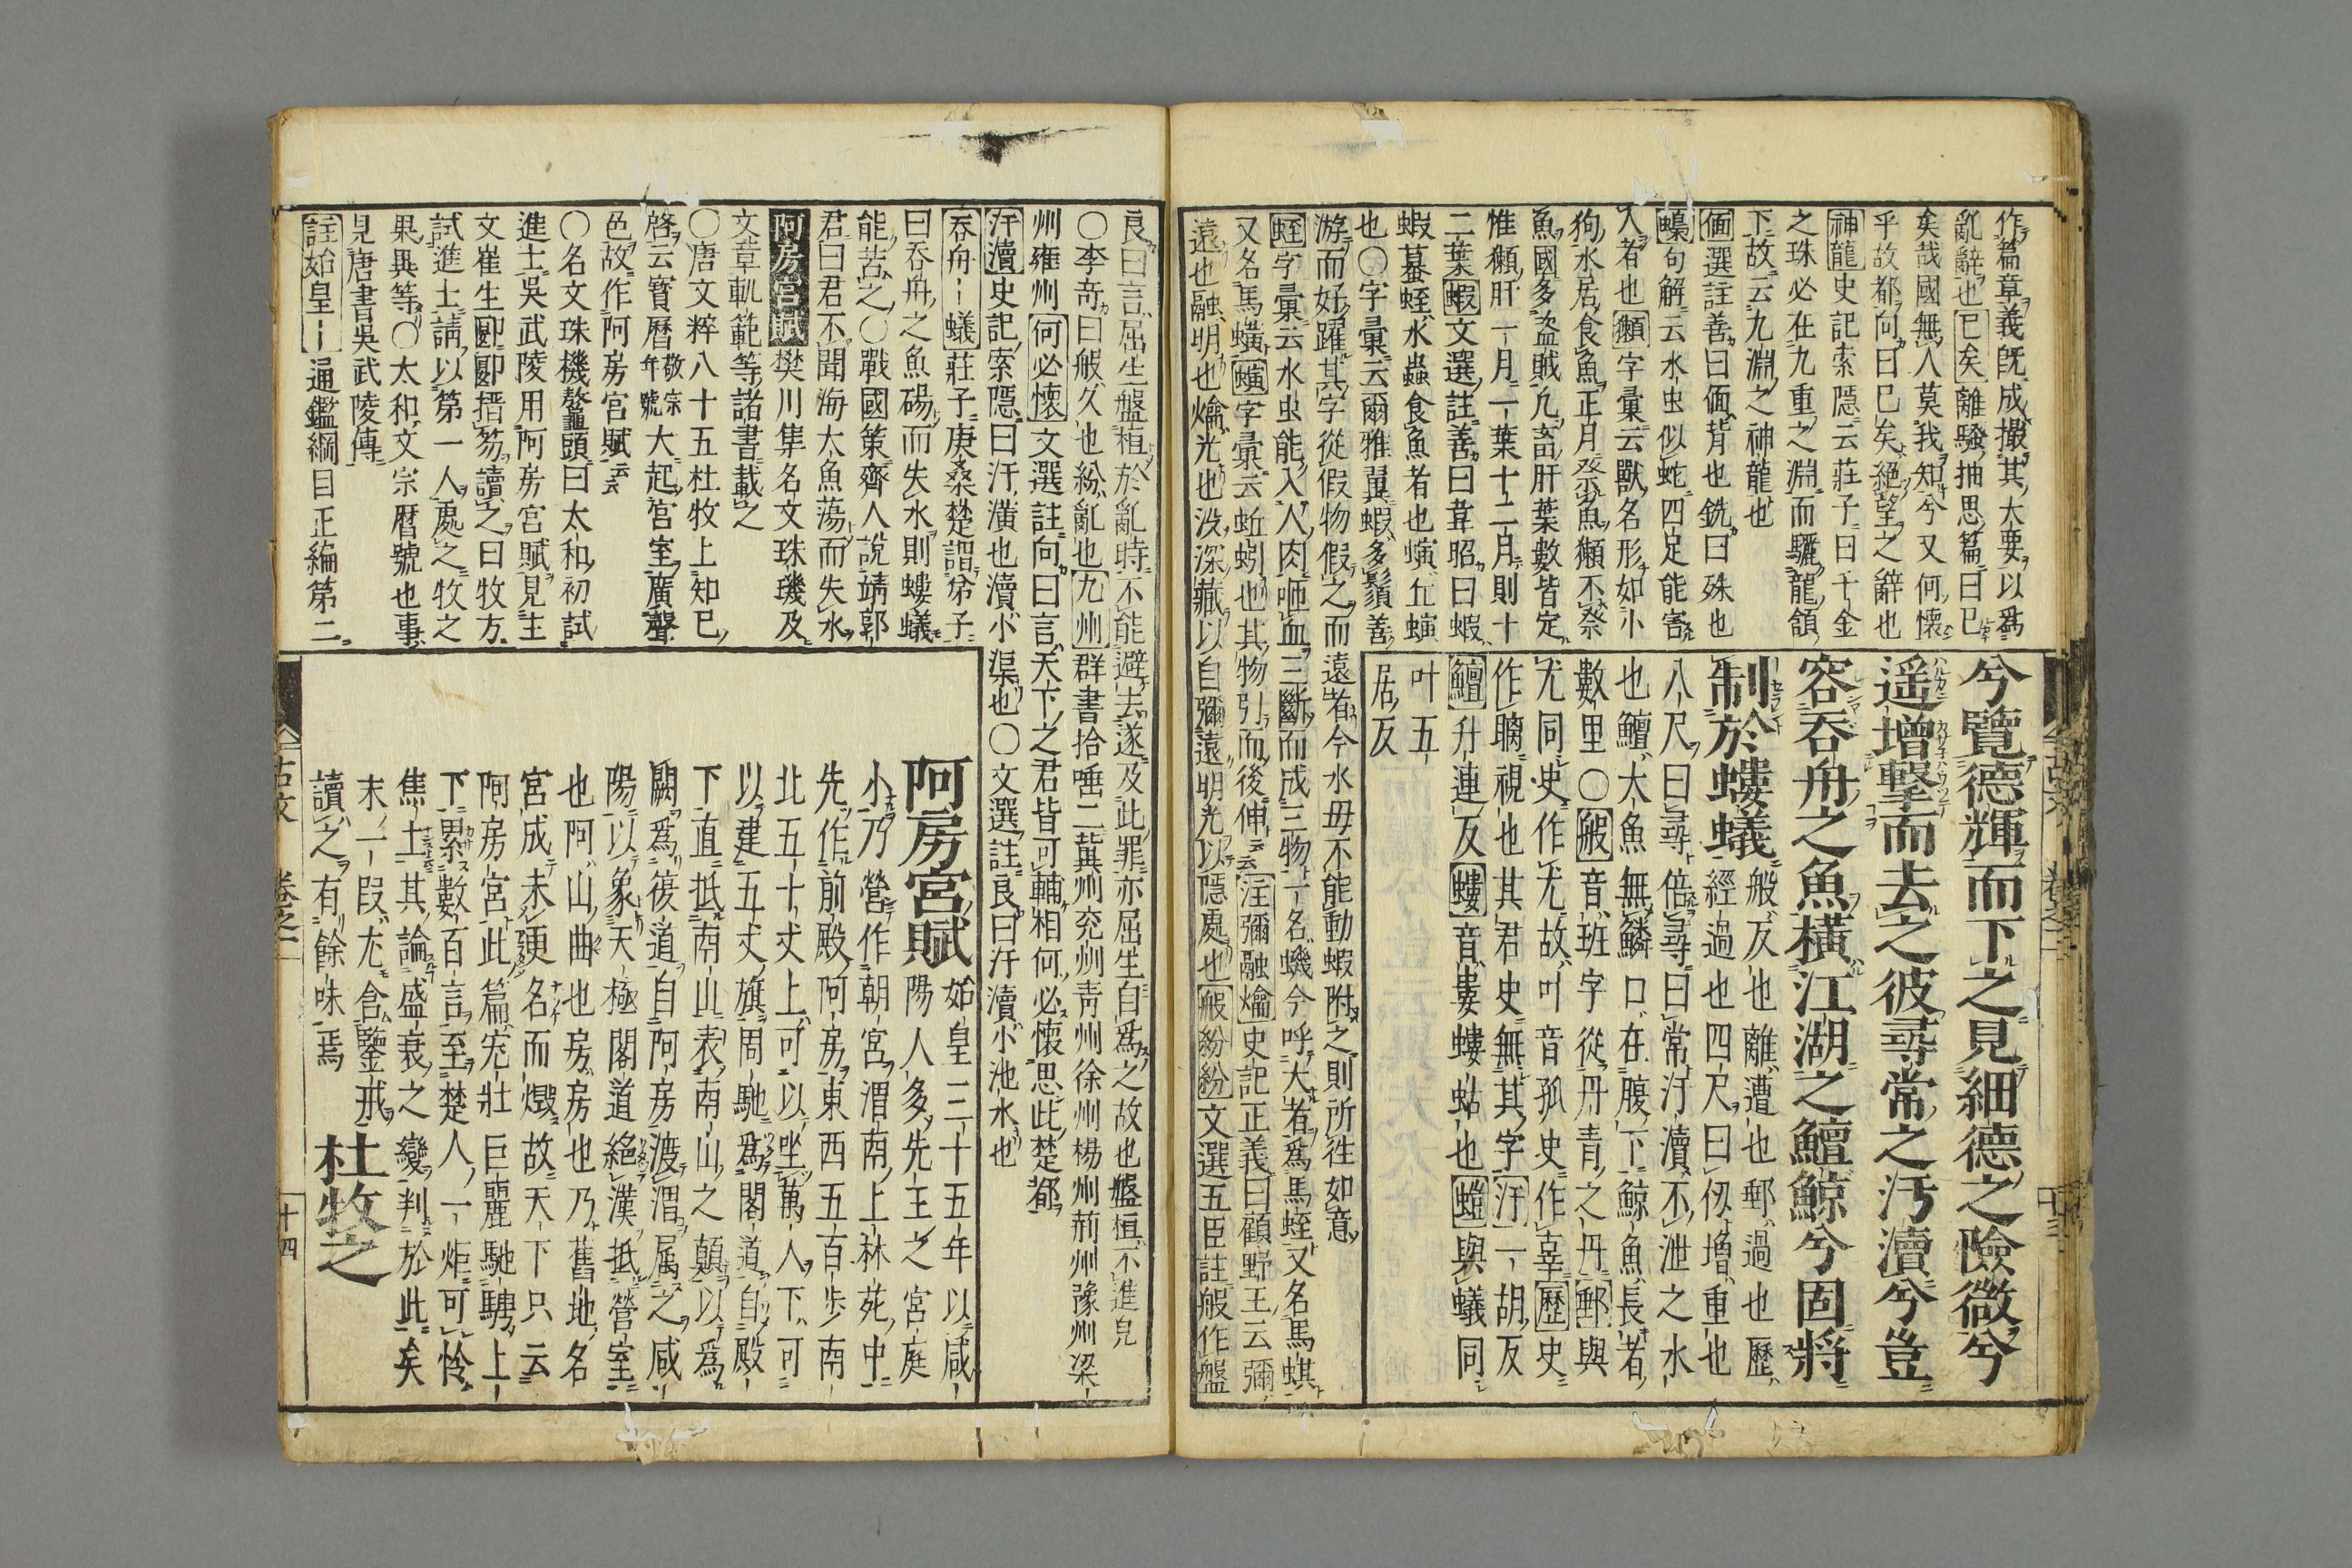 作篇章義既成撮其大要以爲
亂辭也已矣離騷抽思篇曰已
矣哉國無人莫我知兮又何懷
乎故都向曰已矣絕望之辭也
神龍史記索隱云莊子曰千金
之珠必在九重之淵而驪龍頷
下故云九淵之神龍也
偭選註善曰偭背也銑曰殊也
蟂句解云水虫似蛇四足能害
人者也獺字彙云獸名形如小
狗水居食魚正月祭魚獺不祭
魚國多盜賊凡畜肝葉數皆定
惟獺肝一月一葉十二月則十
二葉蝦文選註善曰韋昭曰蝦
蝦蟇蛭水蟲食魚者也螾丘螾
也〇字彙云爾雅翼蝦多鬚善
游而好躍其字從假物假之而遠者今水母不能動蝦附之則所往如意
蛭字彙云水虫能入人肉咂血三斷而成三物一名蟣今呼大者爲馬蛭又名馬蜞
又名馬蟥螾字彙云蚯蚓也其物引而後伸云云注彌融爚史記正義曰顧野王云彌
遠也融明也爚光也沒深藏以自彌遠明光以隱處也般紛紛文選五臣註般作盤
兮覽德輝而下之見細德之險微兮
遥增擊而去之彼尋常之汚瀆兮豈
容吞舟之魚橫江湖之鱣鯨兮固將
制於螻蟻般反也離遭也郵過也歷
經過也四尺曰仞增重也
八尺曰尋倍尋曰常汙瀆不泄之水
也鱣大魚無鱗口在腹下鯨魚長者
數里〇般音班字從丹青之丹郵與
尤同史作尤尤故叶音孤史作辜歷史
作瞝視也其君史無其字汙一胡反
鱣升連反螻音婁螻蛄也螘與蟻同
叶五
居反
良曰言屈生盤桓於亂時不能避去遂及此罪亦屈生自爲之故也盤桓不進皃
〇李奇曰般久也紛亂也九州群書拾唾二冀州兖州青州徐州楊州荊州豫州梁
州雍州何必懷文選註向曰言天下之君皆可輔相何必懷思此楚都
汙瀆史記索隱曰汙潢也瀆小渠也〇文選註良曰汙瀆小池水也
吞舟--蟻莊子庚桑楚謂弟子
曰吞舟之魚碭而失水則螻蟻
能苦之〇戰國策齊人說靖郭
君曰君不聞海大魚蕩而失水
阿房宮賦樊川集名文珠璣及
文章軌範等諸書載之
〇唐文粹八十五杜牧上知已
啓云寶曆敬宗年號大起宮室廣聲
色故作阿房宮賦云云
〇名文珠機鼇頭曰太和初試
進士吳武陵用阿房宮賦見主
文崔生郾郾搢笏讀之曰牧方
試進士請以第一人處之牧之
果異等〇太和文宗曆號也事
見唐書吳武陵傳
註始皇--通鑑綱目正編第二
阿房宮賦始皇三十五年以咸
陽人多先王之宮庭
小乃營作朝宮渭南上林苑中
先作前殿阿房東西五百步南
北五十丈上可以坐萬人下可
以建五丈旗周馳爲閣道自殿
下直抵南山表南山之顛以爲
闕爲復道自阿房渡渭属之咸
陽以象天極閣道絕漢抵營室
也阿山曲也房房也乃舊地名
宮成未更名而燬故天下只云
阿房宮此篇宏壯巨麗馳騁上
下累數百言至楚人一炬可怜
焦土其論盛衰之變判於此矣
末一段尤含鑒戒
讀之有餘味焉
杜牧之
古文
卷之一
十四